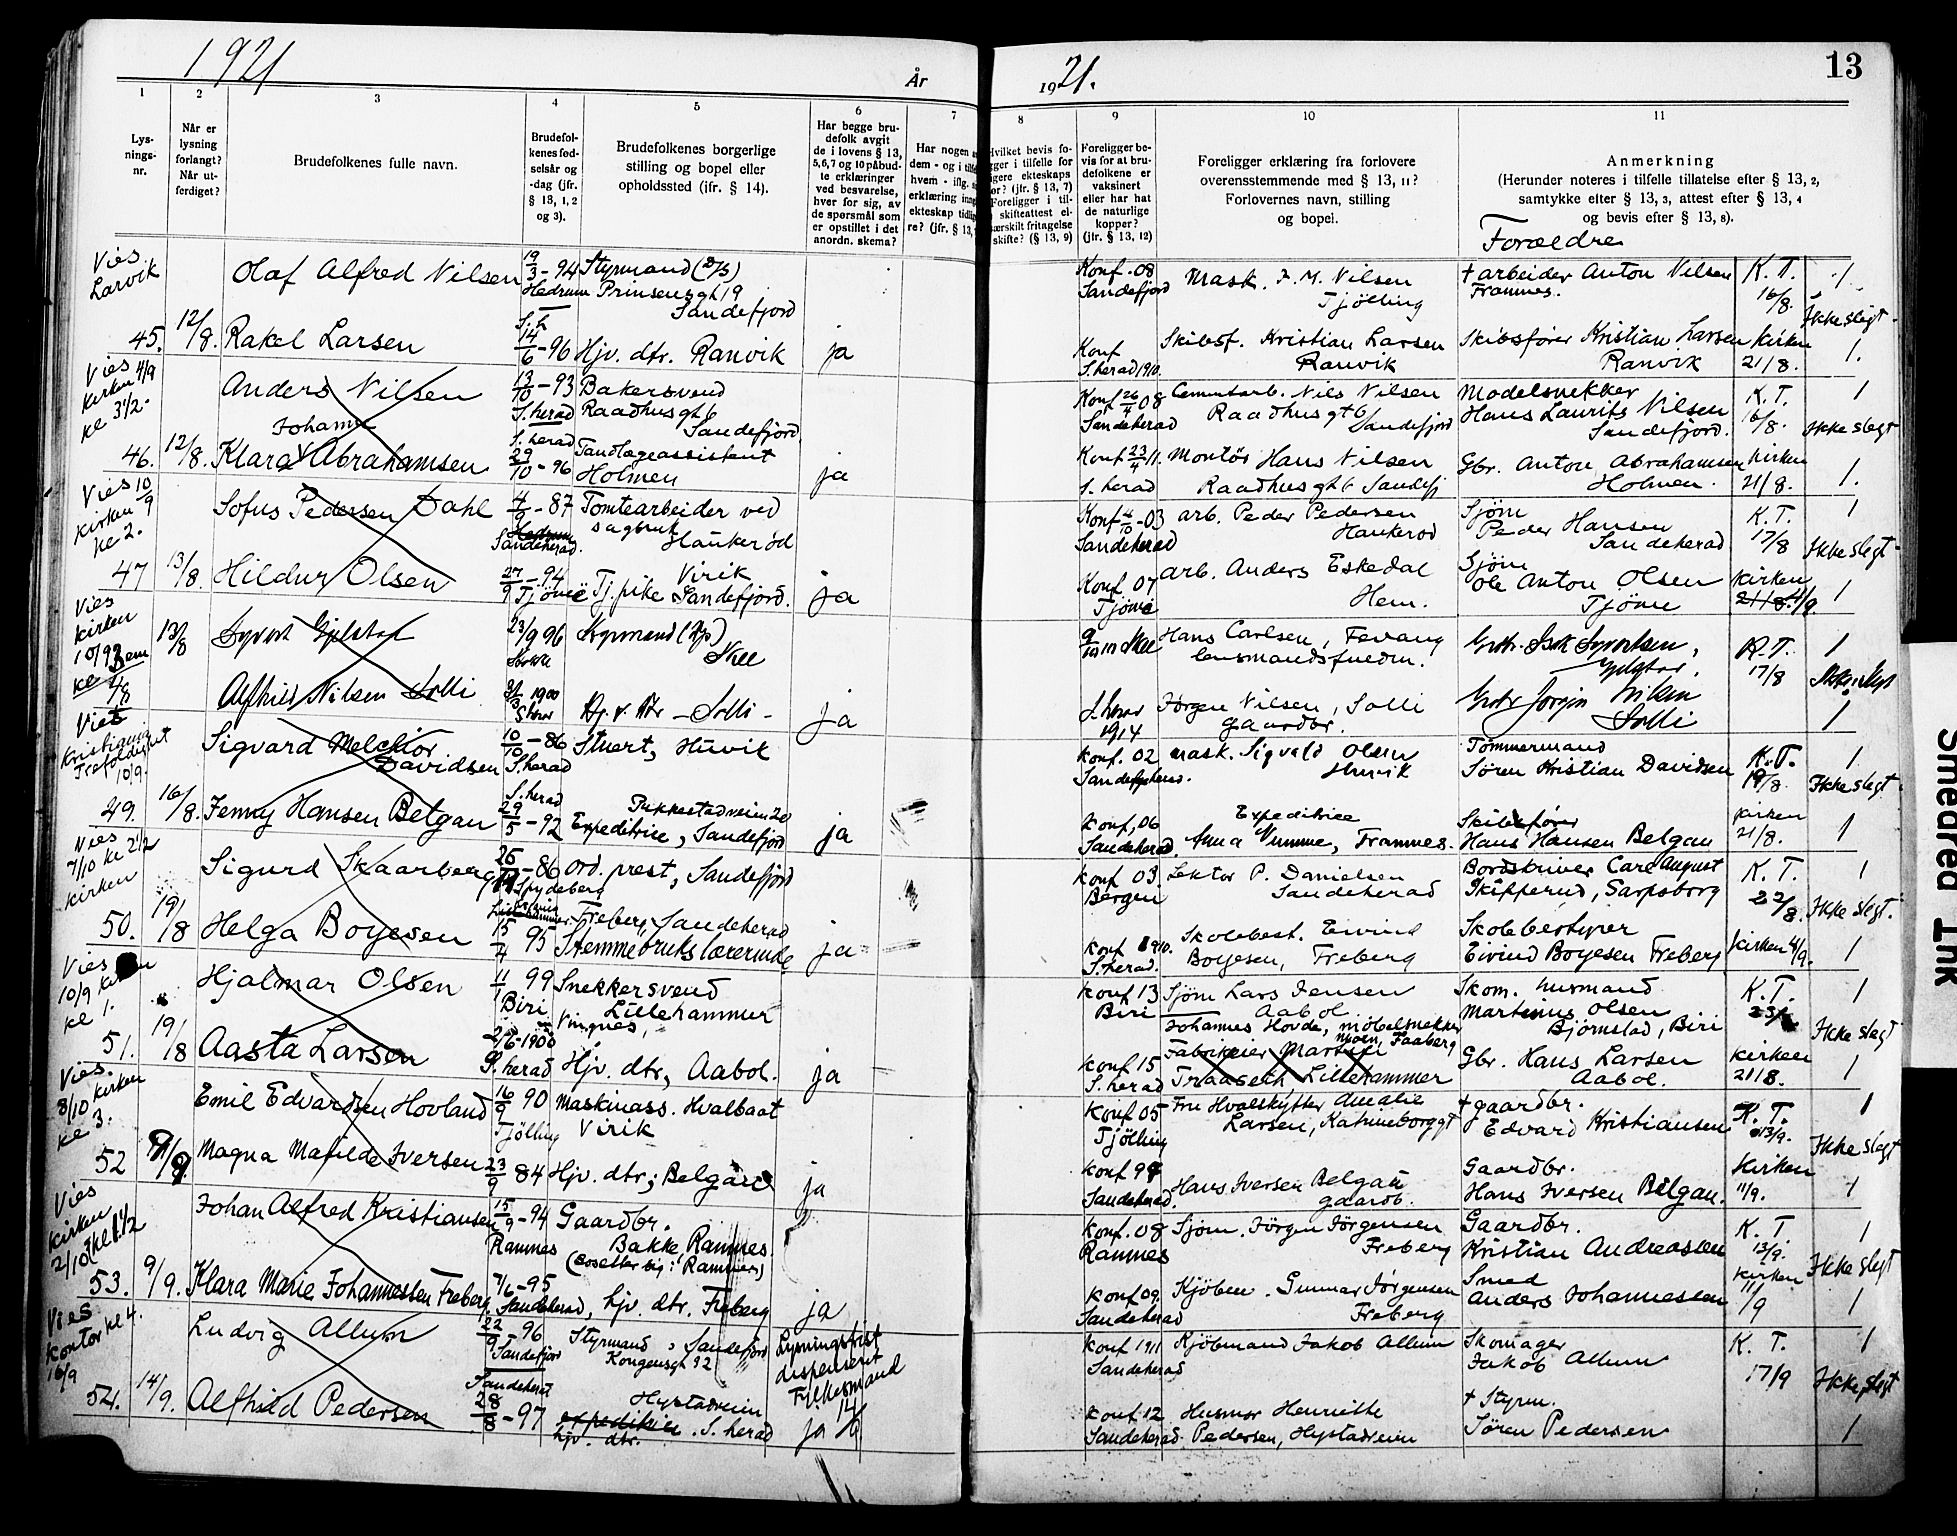 1921
År
1921.
13
1
2
3
4
5
6
7
8
9
10
11
Lys-
nings-
nr.
Når er
lysning
forlangt?
Når ut-
ferdiget?
Brudefolkenes fulle navn.
Brudefol-
kenes fød-
selsår og
-dag (jfr.
§ 13, 1, 2
og 3).
Brudefolkenes borgerlige
stilling og bopel eller
opholdssted (ifr. § 14).
Har begge bru-
defolk avgit
de i lovens § 13,
5, 6, 7 og 10 påbud-
te erklæringer
ved besvarelse,
hver for sig, av
de spørsmål som
er opstillet i det
anordn. skema?
Har nogen a
dem - og i tilf
hvem - iflg.
erklæring inng
ekteskap tidlig
re? (jfr. § 13,
Hvilket bevis fo-
gger i tilfelle for
igere ekteskaps
ør? (jfr. § 13, 7)
Foreligger i til-
skifteattest el-
særskilt fritagelse
skifte? (§ 13, 9)
Foreligger be-
vis for at bru-
defolkene er
vaksinert
eller har hat
de naturlige
kopper?
(jfr. § 13, 12)
Foreligger erklæring fra forlovere
overensstemmende med § 13, 11?
Forlovernes navn, stilling
og bopel.
Anmerkning
(Herunder noteres i tilfelle tillatelse efter § 13, 2,
samtykke efter § 13, 3, attest efter § 13, 4
og bevis efter § 13, 8).
Forældre
Vies
Larvik
Olaf Alfred Nilsen
19/3 - 94
Hedrum
Styrmand (D/S)
Prinsensgt 19
Sandefjord
Konf. 08
Sandefjord
Mask. F. M. Nilsen
Tjölling
† arbeider Anton Nilsen
Framnes.
K. T.
16/8.
Ikke slegt
45.
12/8.
Rakel Larsen
14/6 - 96
Hjv. dtr. Ranvik
ja
Konf
S. herad 1910.
Skibsf. Kristian Larsen
Ranvik
Skibsfører Kristian Larsen
Ranvik
kirken
21/8.
1.
Vies
kirken 4/9
kl 3 1/2.
Anders Nilsen
13/10 - 93
S. herad
Bakersvend
Raadhusgt 6
Sandefjord
Konf 26/4 08
Sandeherad
Cementarb. Nils Nilsen
Raadhusgt 6
Sandefjord
Modelsnekker
Hans Laurits Nilsen
Sandefjord.
K. T.
16/8.
1
Ikke slegt
46.
12/8.
Johanne
Klara Abrahamsen
S. herad
29/10 - 96
Tandlægeassistent
Holmen
ja
Konf 23/4 11.
S. herad
Montör Hans Nilsen
Raadhusgt 6 Sandefj
Gbr. Anton Abrahamsen
Holmen.
kirken
21/8.
1.
Vies 10/9
kirken
kl 2.
Sofus Pedersen Dahl
4/9 - 87
Hedrum
Sandeherad.
Tomtearbeider ved
sagbruk
Haukerød
Konf 4/10 - 03
Sandeherad
arb. Peder Pedersen
Haukerød
Sjøm
Peder Hansen
Sandeherad
K. T.
17/8
1
Ikke slegt
47
13/8.
Hildur Olsen
27/9 - 94
Tjöme
Virik
Tj. pike Sandefjord.
ja
Konf. 07
Tjöme
arb. Anders Eskedal
Hem.
Sjøm
Ole Anton Olsen
Tjöme
kirken
21/8. 4/9.
1
Vies
kirken
10/9
kl
13/8
23/9 96
Styrmand
Hans Carlsen, Fevang
lensmandsfuldm.
K. T.
17/8
1
48
Alfhild Nilsen Solli
1900
S. herad
Hj. v. dtr - Solli -
ja
S. herad
1914
Jørgen Nilsen, Solli
gaardbr.
Solli
1
Vies
Kristiania
Trefoldighet
10/9.
Sigvard Melchior
Davidsen
10/10 - 86
S. herad
Stuert, Huvik
Konf. 02
mask. Sigvald Olsen
Huvik
Tømmermand
Søren Kristian Davidsen
K. T.
19/8.
1.
Ikke slegt
49.
16/8.
Jenny Hansen Belgau
S. herad
29/5 - 92
Pukkestadveien 20
Expeditrice, Sandefjord
ja
Konf. 06
Sandeherad.
Expeditrice
Anna Vumme, Framnes.
Skibsfører
Hans Hansen Belgau
kirken
21/8.
1
Vies
7/10 kl 2 1/2
kirken
Sigurd Skaarberg
- 86
Spydeberg
Ord. prest, Sandefjord
Konf 03.
Bergen
Lektor P. Danielsen
Sandeherad
Bordskriver Carl August
Skipperud, Sarpsborg
K. T.
22/8.
1
Ikke slegt.
50.
19/8
Helga Boyesen
15/4 95
Freberg, Sandeherad
Stemmebrukslærerinde
ja
konf 1910.
S. herad.
Skolebest. Eivind
Boyesen, Freberg
Skolebestyrer
Eivind Boyesen Freberg
kirken 4/9.
1
Vies
10/9 kirken
kl 1.
Hjalmar Olsen
11/1 99
Biri
Snekkersvend
Lillehammer
Vingnes,
konf 13
Biri
Sjøm Lars Jensen
Aabol.
Johannes Hovde, møbelsnekker
Faaberg
Skom. husmand
Martinius Olsen
Bjørnstad, Biri
K. T.
23/8
1
Ikke slegt
51.
19/8
Aasta Larsen
2/6 - 1900
S. herad
Hjv. dtr, Aabol.
ja
konf 15
S. herad
Fabrikeier Martin
Traaseth Lillehammer
Gbr. Hans Larsen
Aabol.
kirken
21/8.
1
Vies.
8/10 kirken
kl 3.
Emil Edvardsen Hovland
16/9 90
Tjölling
Maskinass. Hvalbaat
Virik
Konf 05
Tjölling
Fru Hvalskytter Amalie
Larsen, Katrineborggt
† gaardbr.
Edvard Kristiansen
K. T.
13/9.
1
Ikke slegt
52
Magna Matilde Iversen
23/9 84
Hjv. dtr; Belgau
ja
konf 99
Sandeherad.
Hans Iversen Belgau
gaardb.
Gaardbr.
Hans Iversen Belgau.
kirken
11/9.
1
Vies
kirken
2/10 kl 1 1/2
Johan Alfred Kristiansen
15/9 - 94
Ramnes
Gaardbr.
Bakke, Ramnes.
(bosetter sig i Ramnes)
konf. 08
Ramnes
Sjøm. Jörgen Jörgensen
Freberg
Gaardbr.
Kristian Andreassen
K. T.
13/9.
1
Ikke slegt
53.
9/9.
Klara Marie Johannessen Freberg
7/6 - 95
Sandeherad, hjv. dtr. Freberg
ja
konf 09.
Sandeherad
Kjöbm. Gunnar Jörgensen
Freberg
Smed
Anders Johannessen
kirken
11/9
1
Vies
kontor kl 4.
16/9
Ludvig Allum
22/9 96
Sandefjord
Styrmand, Sandefjord
Kongensgt 32
Lysningsfrist
dispensert
Fylkesmand
14/9
konf 1911
Sandeherad
Kjöbmand Jakob Allum
Skomager
Jakob Allum
K. T.
17/9
1
Ikke slegt
54.
14/9.
Alfhild Pedersen
Sandeherad
28/8 - 97
Hystadveien
expeditrice. S. herad
hjv. dtr.
ja
konf. 12
Sandeherad.
Husmor Henriette
Pedersen, Hystadveien
† Styrm.
Søren Pedersen
1
Smeared Ink